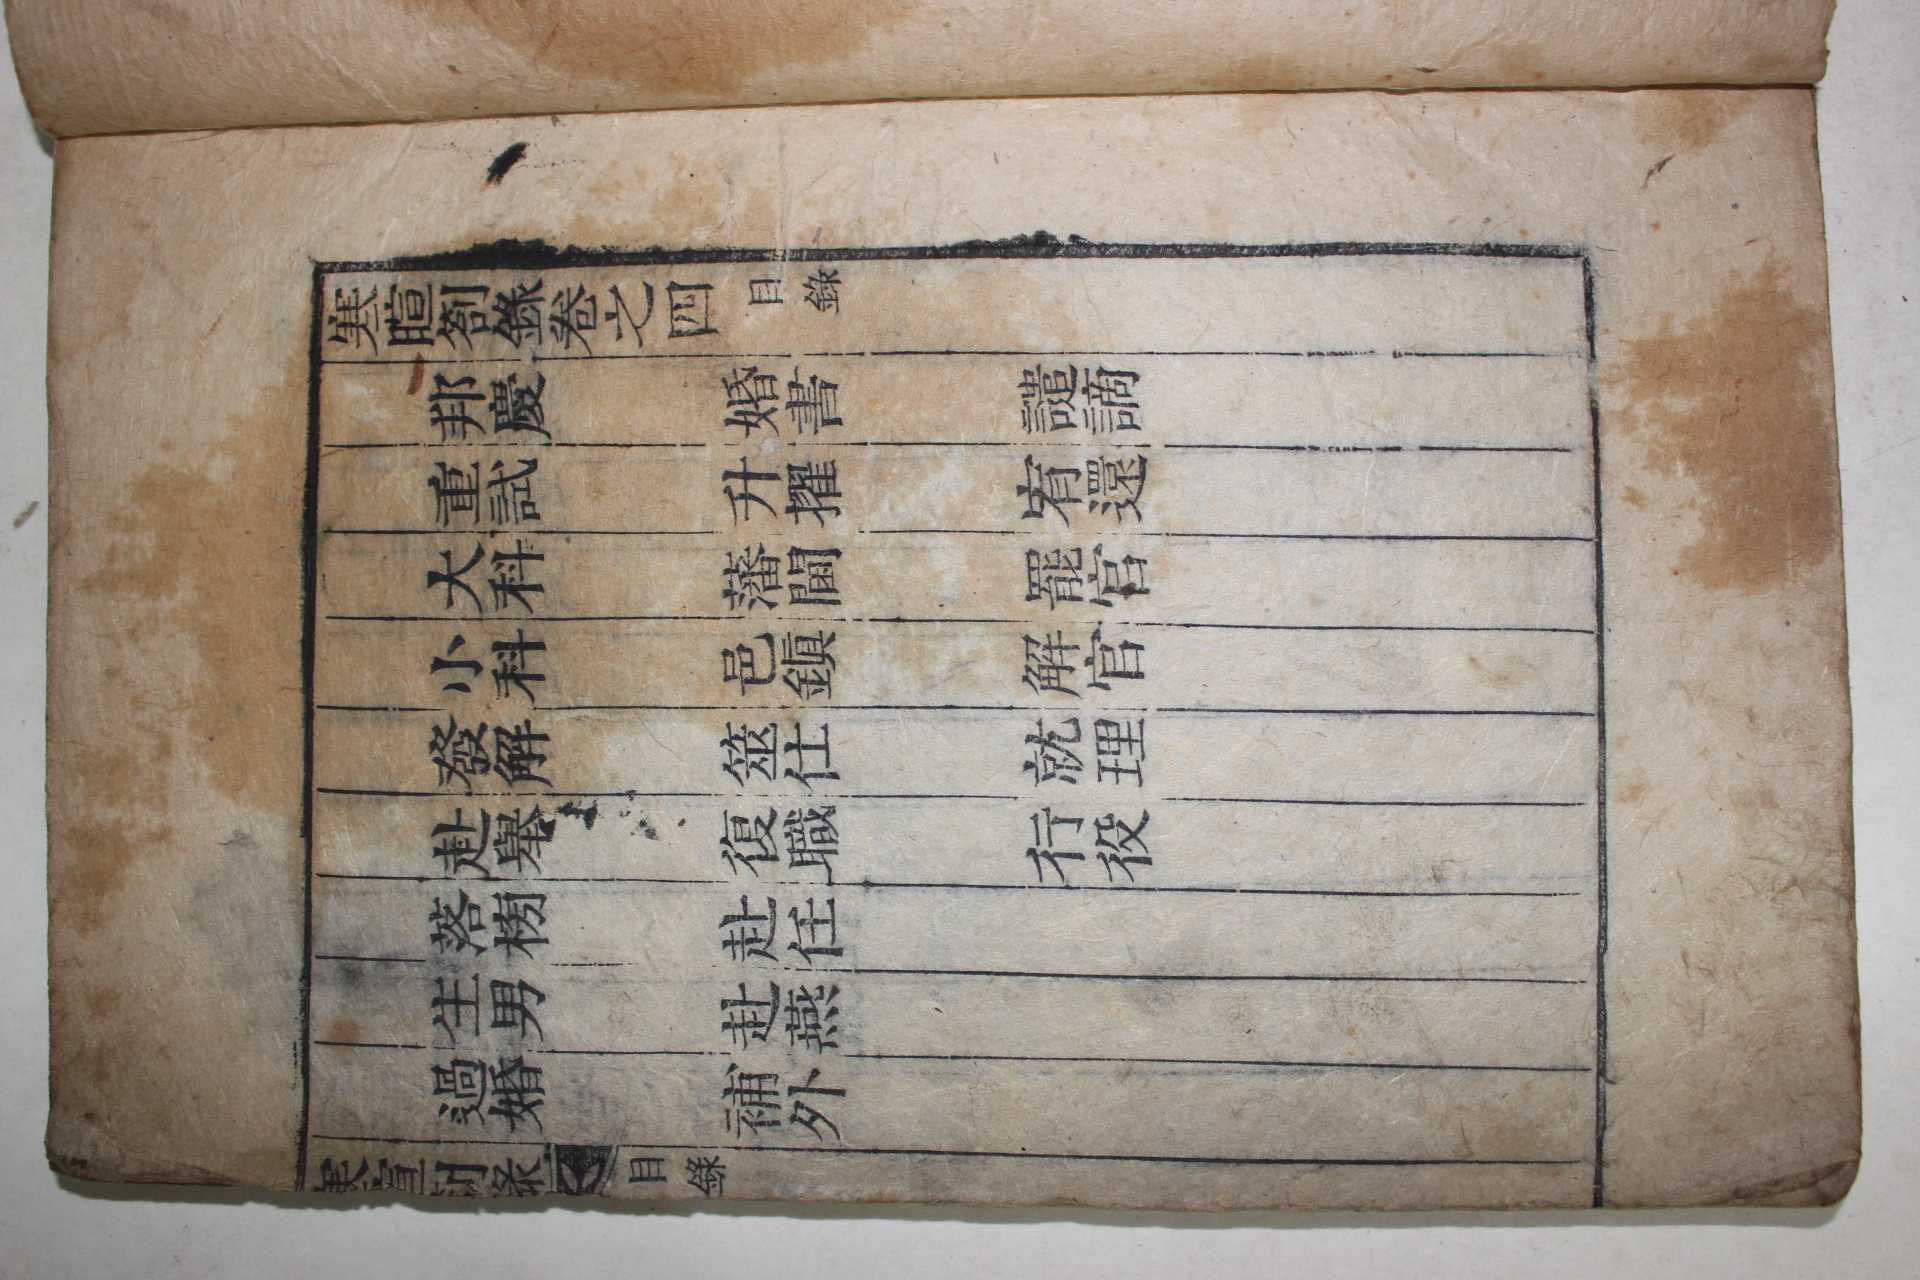 寒暄劄錄卷之四 目錄
邦慶 婚書 譴謫
重試 升擢 宥還
大科 藩閫 罷官
小科 邑鎭 解官
發解 筮仕 就理
赴舉 復職 行役
落榜 赴任
生男 赴燕
過婚 補外
寒暄劄錄 目錄